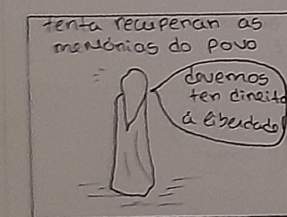 tenta recuperar as
memórias do povo
devemos
ter direito
á liberdade